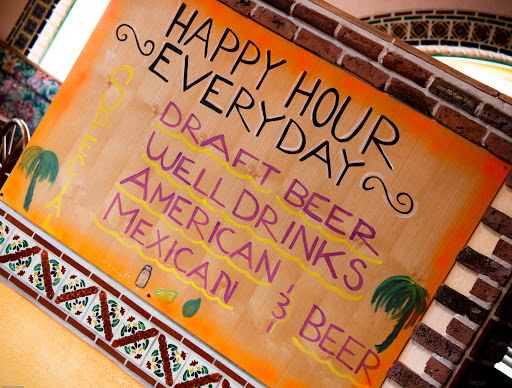 HAPPY HOUR
EVERYDAY
DRAFT BEER
WELL DRINKS
AMERICAN &
MEXICAN BEER